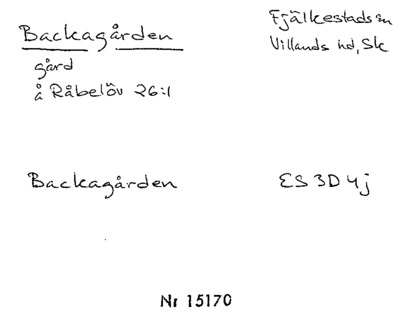 Backagården
gård
å Råbelöv 26:1
Fjälkestads sn
Villands hd, Sk
Backagården
ES 3D 4j
Nr 15170